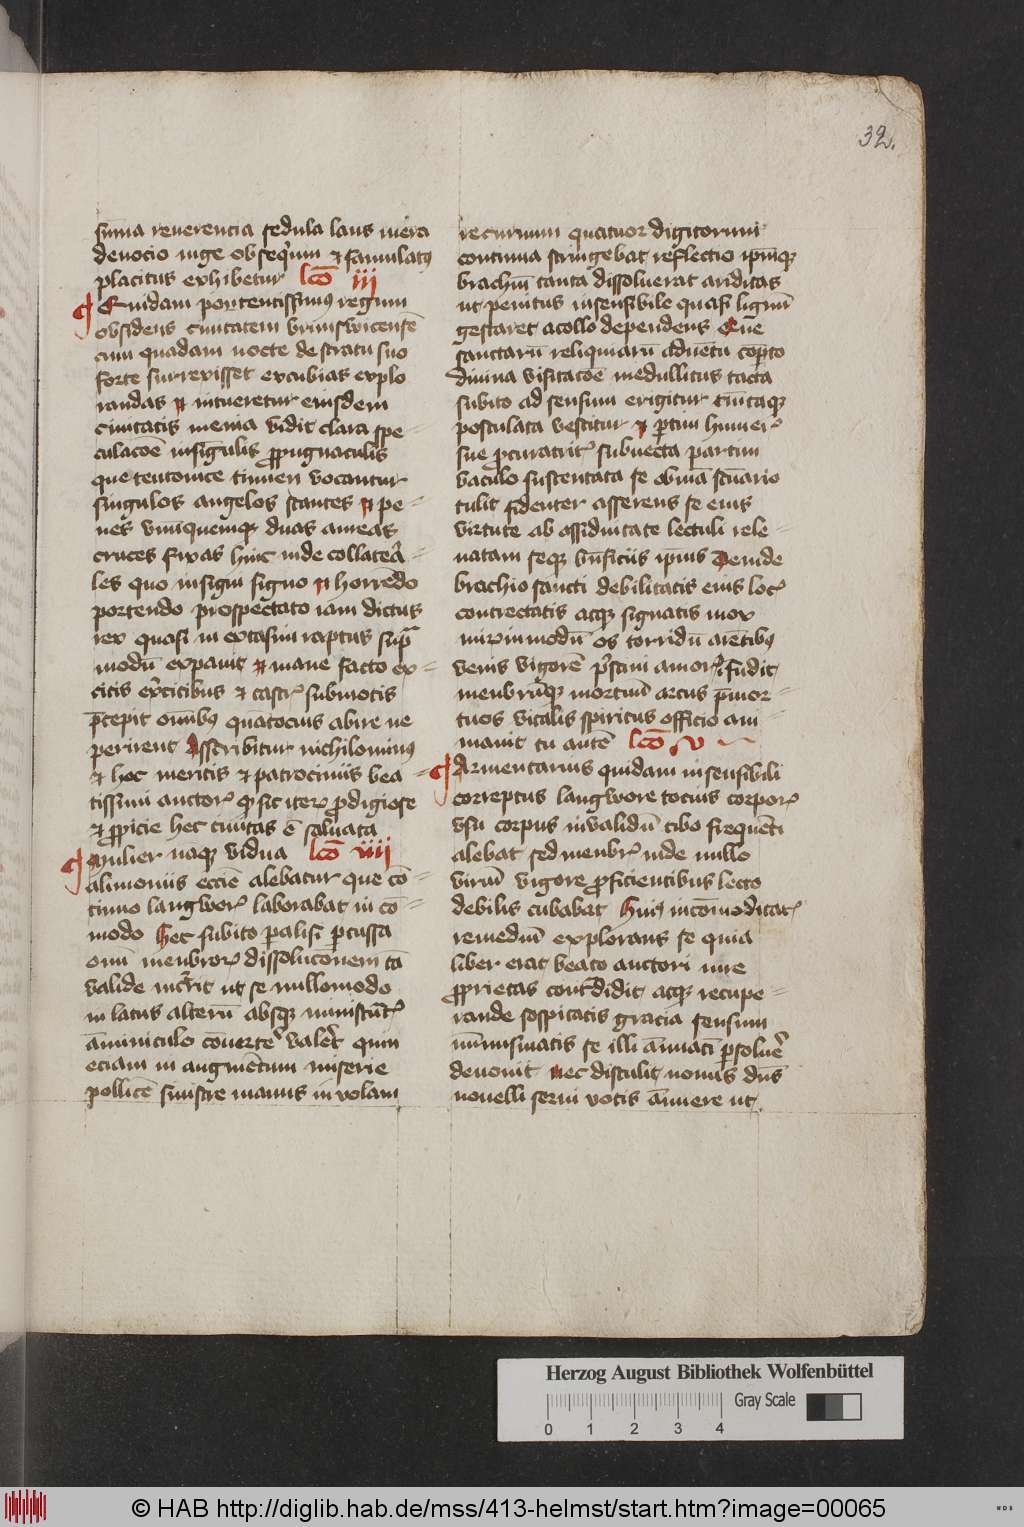 32.
sūma reuerencia sedula laus mera
deuocio iuge obsequium et famulatus
placitus exhibetur lcō iii
Quidam portentissimus regum
obsidens ciuitatem brunswicensē
cum quadam nocte de stratu suo
forte surrexisset excubias explo
randas et intueretur eiusdem
ciuitatis menia vidit clara spe-
culacōe insigulis propugnaculis
que teutonice tinnen vocantur
singulos angelos stantes et pe-
nes vnūquemque duas aureas
cruces fixas hinc inde collatera-
les quo insigni signo et horrēdo
portendo prospectato iam dictus
rex quasi in extasim raptus supra
modū expauit et mane facto ex-
citis exercitibus et castris submotis
precepit omībus quatocius abire ne
perirent Asscribitur nichilominus
et hoc meritis et patrociniis bea-
tissimi auctoris quod sic iterum prodigiose
et propicie hec ciuitas ē saluata
Mulier namque vidua lcō iiii
alimoniis ecclīe alebatur que cō-
tinuo langwore laborabat in cō-
modo Hec subito paralisi percussa
omī menbrorum dissolucōnem tā
valide incurrit ut se nullomodo
in latus alterū absque ministrantis
āminiculo cōuertere valeret quin
eciam in augmētum miserie
pollicē sinistre manus in volam
recuruum quatuor digitorum
continua stringebat reflectio ipmque
brachiū tanta dissoluerat ariditas
ut penitus insensibile quasi lignū
gestaret a collo dependens Que
sanctarū reliquiarū aduētu cōperto
diuina visitacōe medullitus tacta
subito ad sensum erigitur tunicaque
postulata vestitur et partim humeris
sue procuratricis subuecta partim
baculo sustentata se obuiā sanctuario
tulit fidenter asserens se eius
virtute ab assiduitate lectuli rele-
uatam seque beneficiis ipsius Deinde
brachio sancti debilitatis eius locis
contrectatis atque signatis mox
mirum in modū os torridū arētibus
venis vigorē pristini amoris infudit
menbrūque mortuū artus premor-
tuos vitalis spiritus officio ani-
mauit tu autē lcō v
Armentarius quidam insensibili
correptus langwore tocius corporis
vsu corpus inualidū cibo frequēti
alebat sed menbris inde nullo
viriū vigore proficientibus lecto
debilis cubabat Huius incōmoditatis
remediū explorans se quia
liber erat beato auctori iure
proprietas contradidit atque recupe-
rande sospitatis gracia sensum
nūmismatis se illi annuatī persoluere
deuouit nec distulit nouus dūs
nouelli serui votis annuere ut
Herzog August Bibliothek Wolfenbüttel
Gray Scale
0 1 2 3 4
© HAB http://diglib.hab.de/mss/413-helmst/start.htm?image=00065